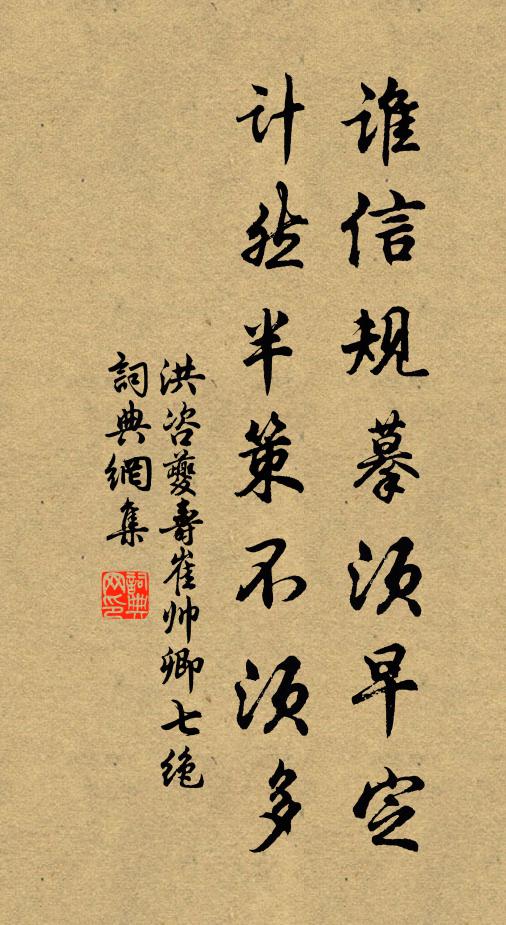 谁信规摹须早定
计然半策不须多
洪咨夔壽崔帅卿七绝
詞典網集
詞典网印